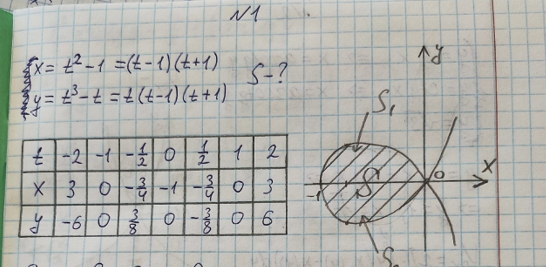 N1
x = t² - 1 = (t-1)(t+1)
y = t³ - t = t(t-1)(t+1)
S - ?
t | -2 | -1 | -1/2 | 0 | 1/2 | 1 | 2
x | 3 | 0 | -3/4 | -1 | -3/4 | 0 | 3
y | -6 | 0 | 3/8 | 0 | -3/8 | 0 | 6
y
S₁
x
-1
S
0